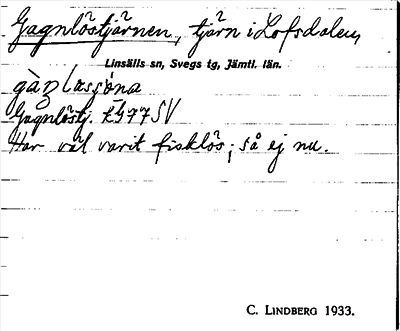 Gagnlöstjärnen, tjärn i Lofsdalen,
Linsälls sn, Svegs tg, Jämtl. län.
Gagnlöstj. Ä477SV
Har väl varit fisklös; så ej nu.
C. LINDBERG 1933.